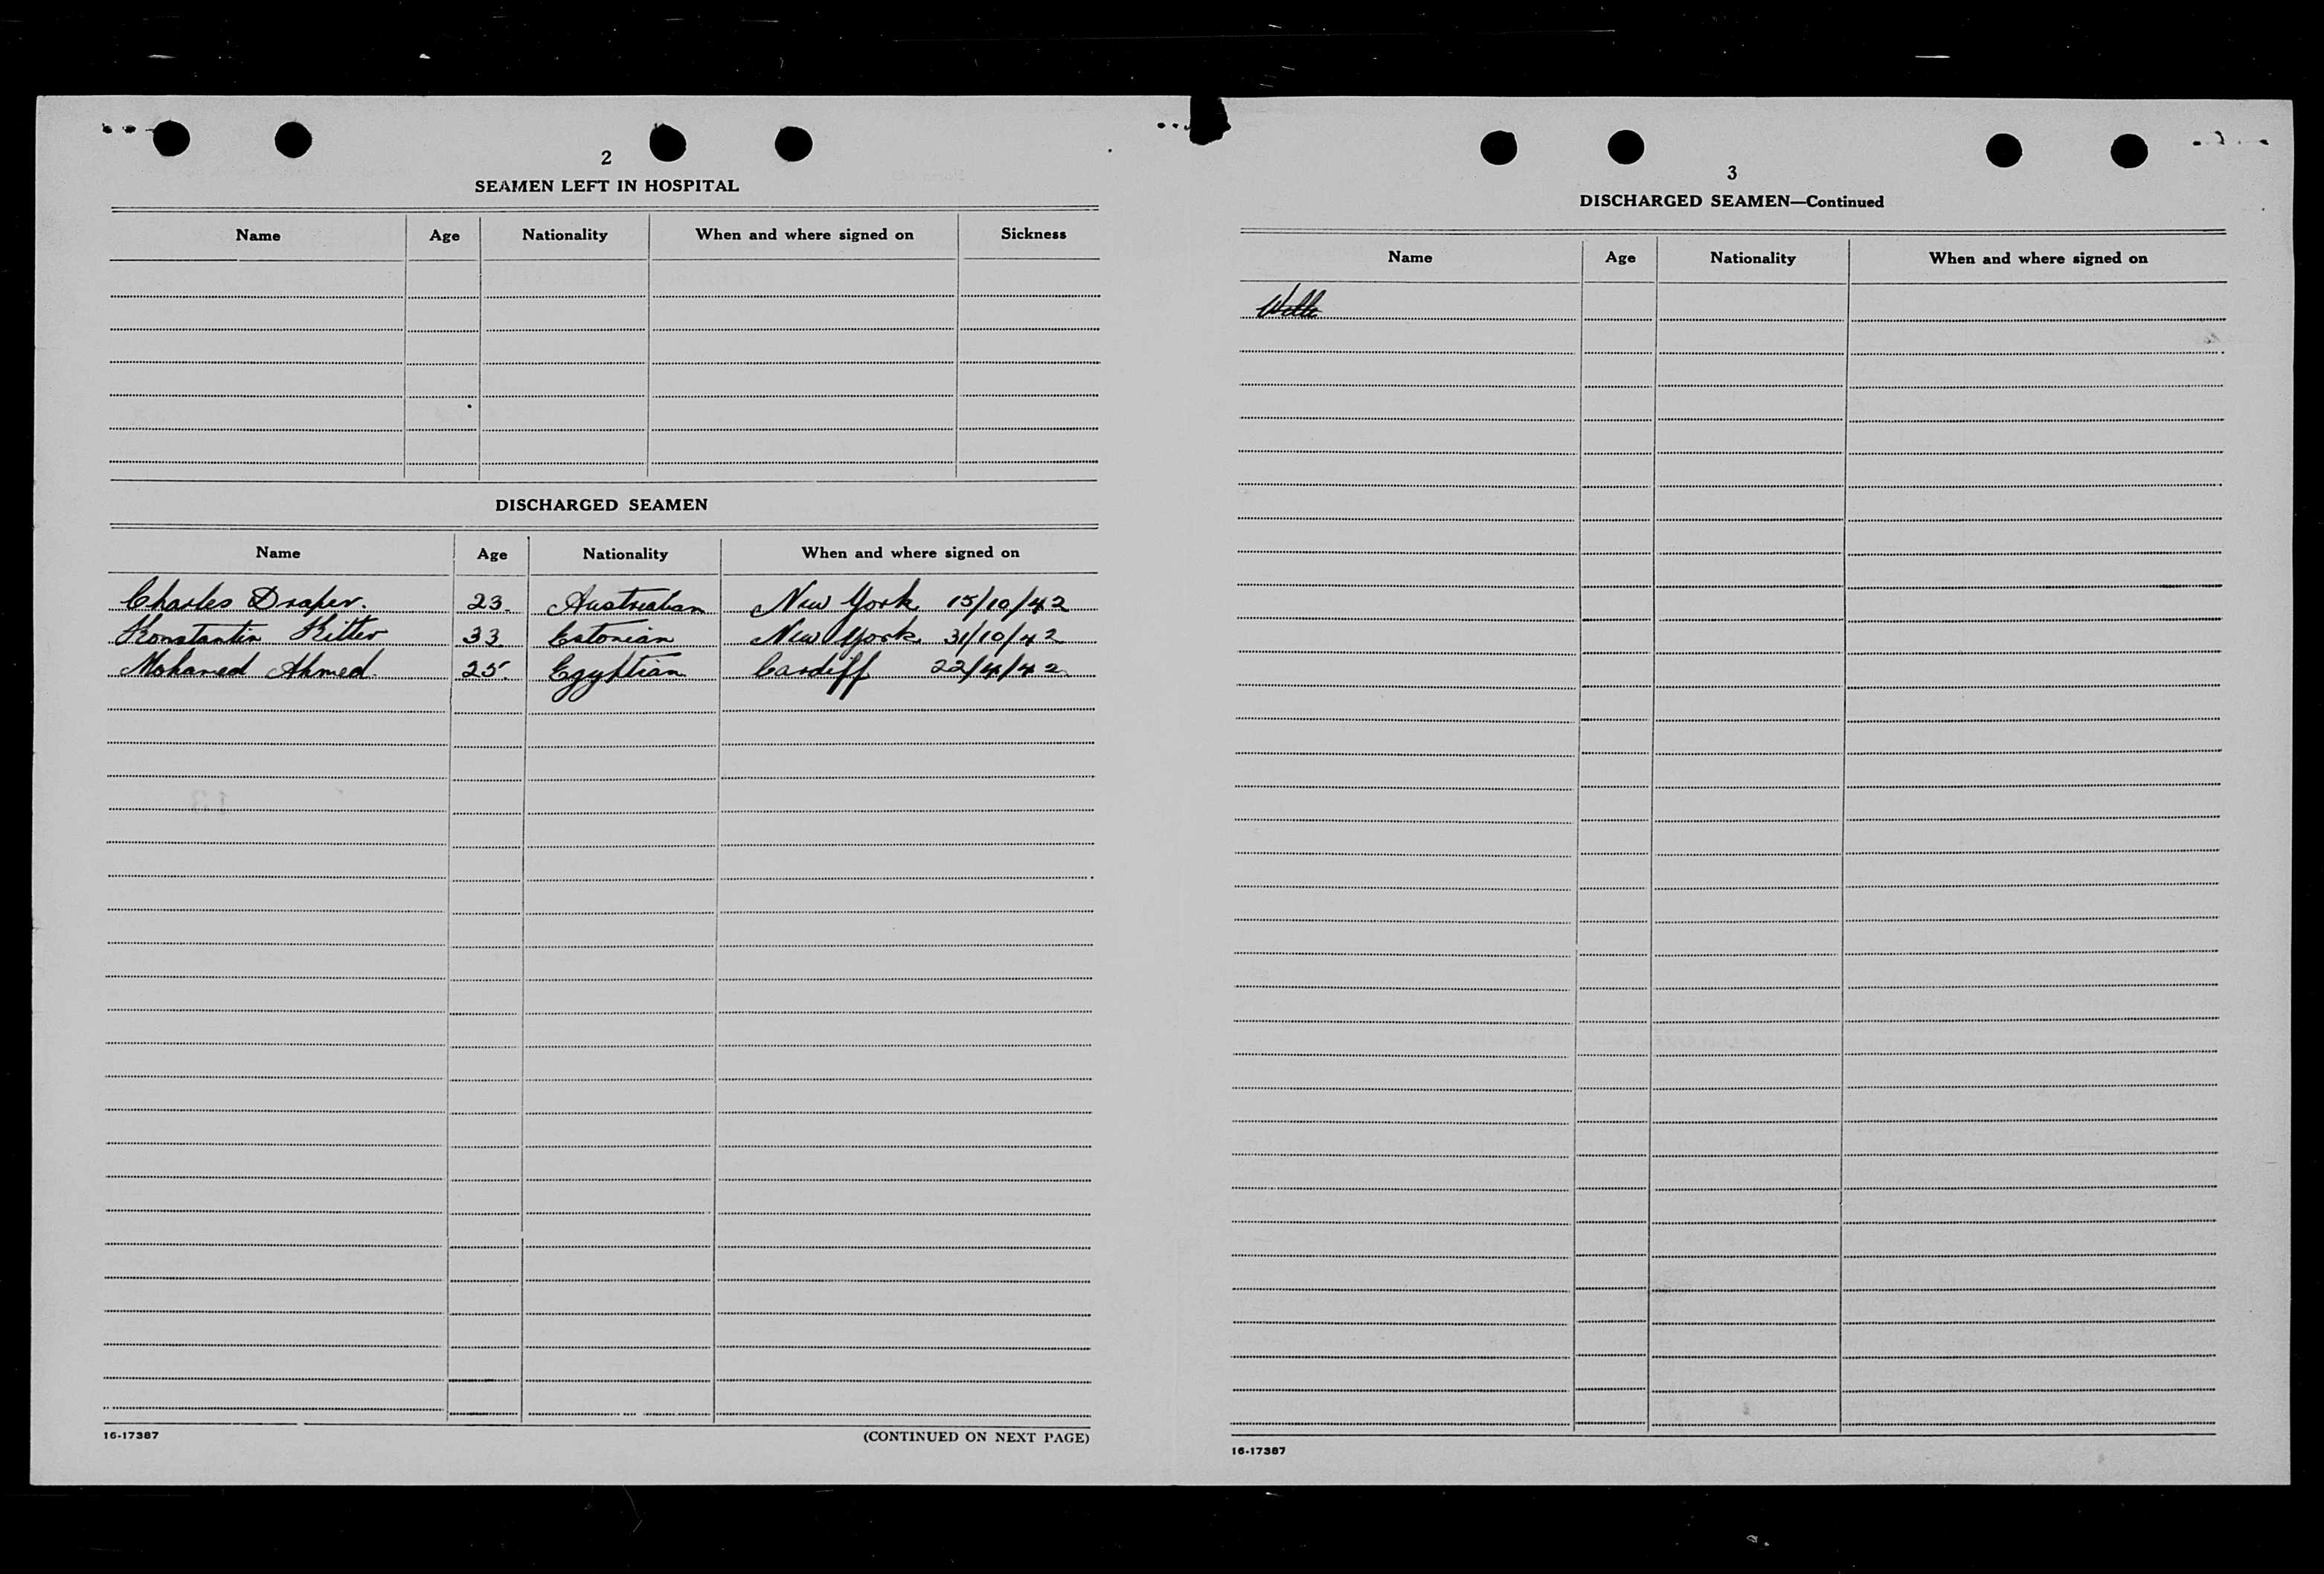 2
SEAMEN LEFT IN HOSPITAL
Name Age Nationality When and where signed on Sickness
DISCHARGED SEAMEN
Name Age Nationality When and where signed on
Charles Draper. 23. Australian New York 15/10/42
Konstantin Kitter 33 Estonian New York 31/10/42
Mohamed Ahmed. 25. Egyptian Cardiff 22/4/42
16-17387
(CONTINUED ON NEXT PAGE)
3
DISCHARGED SEAMEN—Continued
Name Age Nationality When and where signed on
16-17387